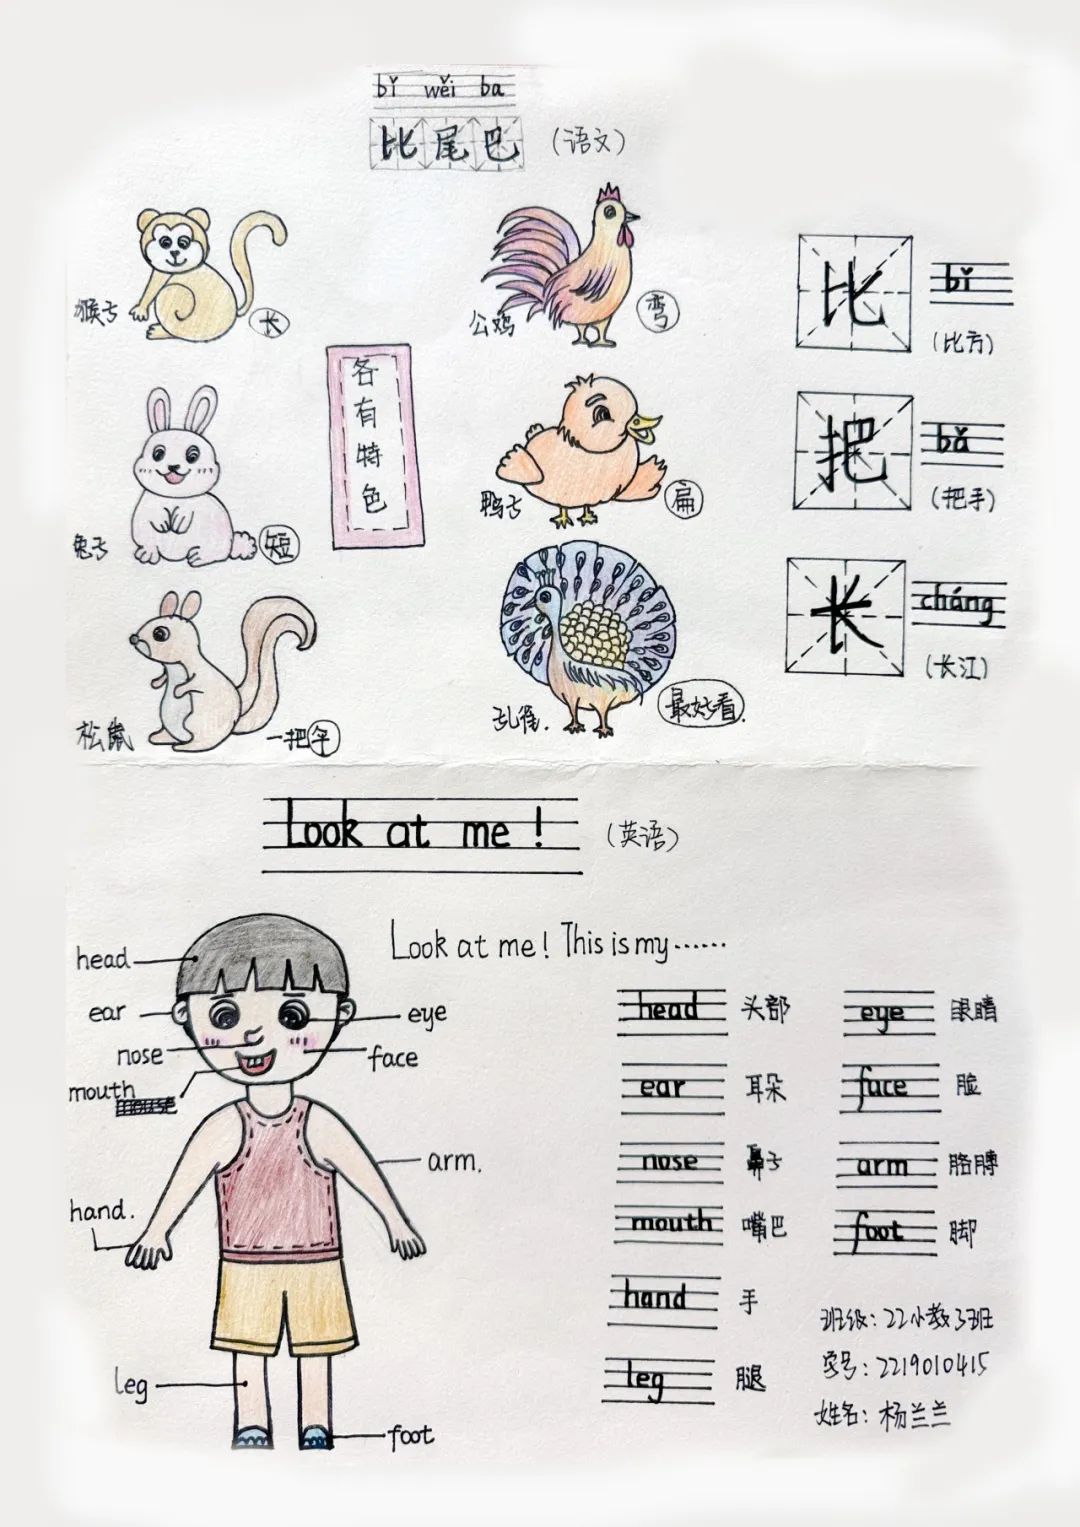 bǐ wěi ba
比尾巴 (语文)
猴子 长
公鸡 弯
比 bǐ
(比方)
各有特色
兔子 短
鸭子 扁
把 bǎ
(把手)
松鼠 一把伞
孔雀. 最好看.
长 cháng
(长江)
Look at me! (英语)
Look at me! This is my······
head
ear
nose
mouth
hand.
leg
eye
face
arm.
foot
head 头部 eye 眼睛
ear 耳朵 face 脸
nose 鼻子 arm 胳膊
mouth 嘴巴 foot 脚
hand 手
leg 腿
班级: 22小教3班
学号: 2219010415
姓名: 杨兰兰